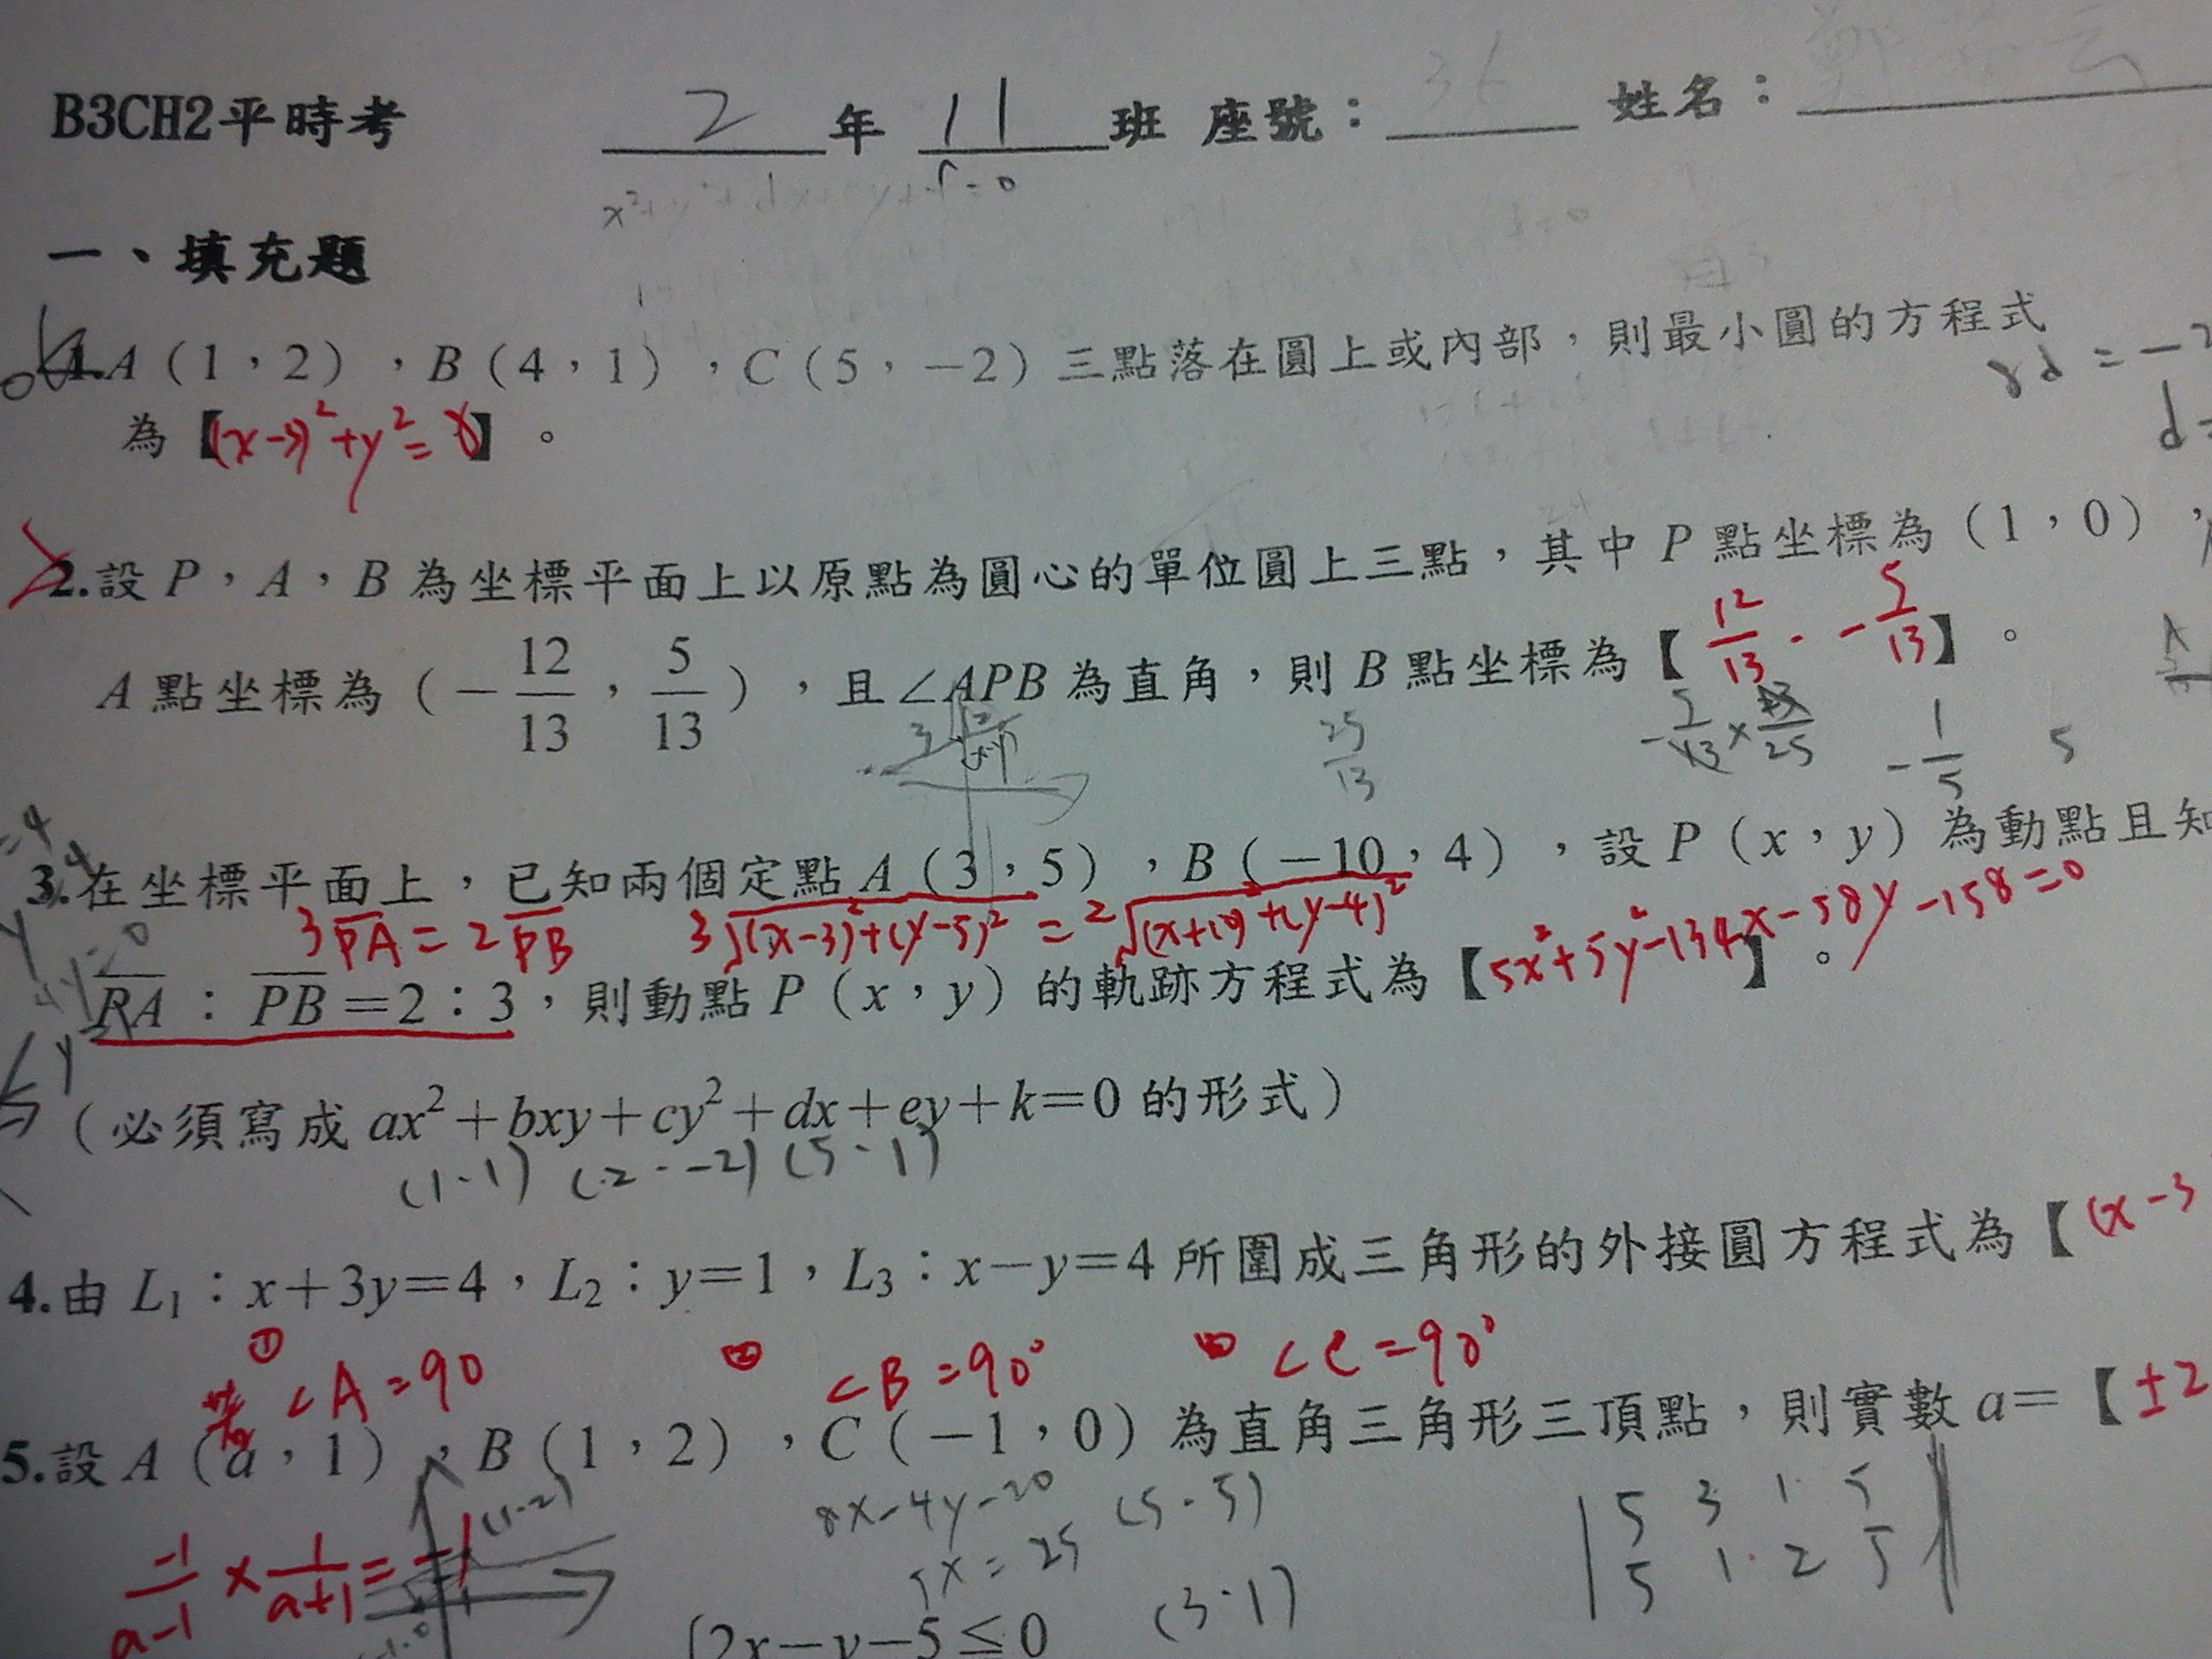 B3CH2平時考 2 年 11 班 座號：36 姓名：
一、填充題
1.A（1，2），B（4，1），C（5，－2）三點落在圓上或內部，則最小圓的方程式
為【(x-3)²+y²=8】。
2.設 P，A，B 為坐標平面上以原點為圓心的單位圓上三點，其中 P 點坐標為（1，0），
A 點坐標為（－12/13，5/13），且∠APB 為直角，則 B 點坐標為【12/13．-5/13】。
25/13
-1/5 5
3.在坐標平面上，已知兩個定點 A（3，5），B（－10，4），設 P（x，y）為動點且知
3PA=2PB 3√(x-3)²+(y-5)² = 2√(x+10)²+(y-4)²
PA：PB＝2：3，則動點 P（x，y）的軌跡方程式為【5x²+5y²-134x-58y-158=0】。
（必須寫成 ax²＋bxy＋cy²＋dx＋ey＋k＝0 的形式）
(1.1) (2.-2) (5.-1)
4.由 L₁：x＋3y＝4，L₂：y＝1，L₃：x－y＝4 所圍成三角形的外接圓方程式為【(x-3
① 若∠A=90 ② ∠B=90° ③ ∠C=90°
5.設 A（a，1），B（1，2），C（－1，0）為直角三角形三頂點，則實數 a＝【±2
(1.2) 8x-4y-20 (5.5)
5x=25 (3.1)
5 3 1 5
5 1 2 5
-1/a-1 × 1/a+1 = -1
2x－y－5≤0